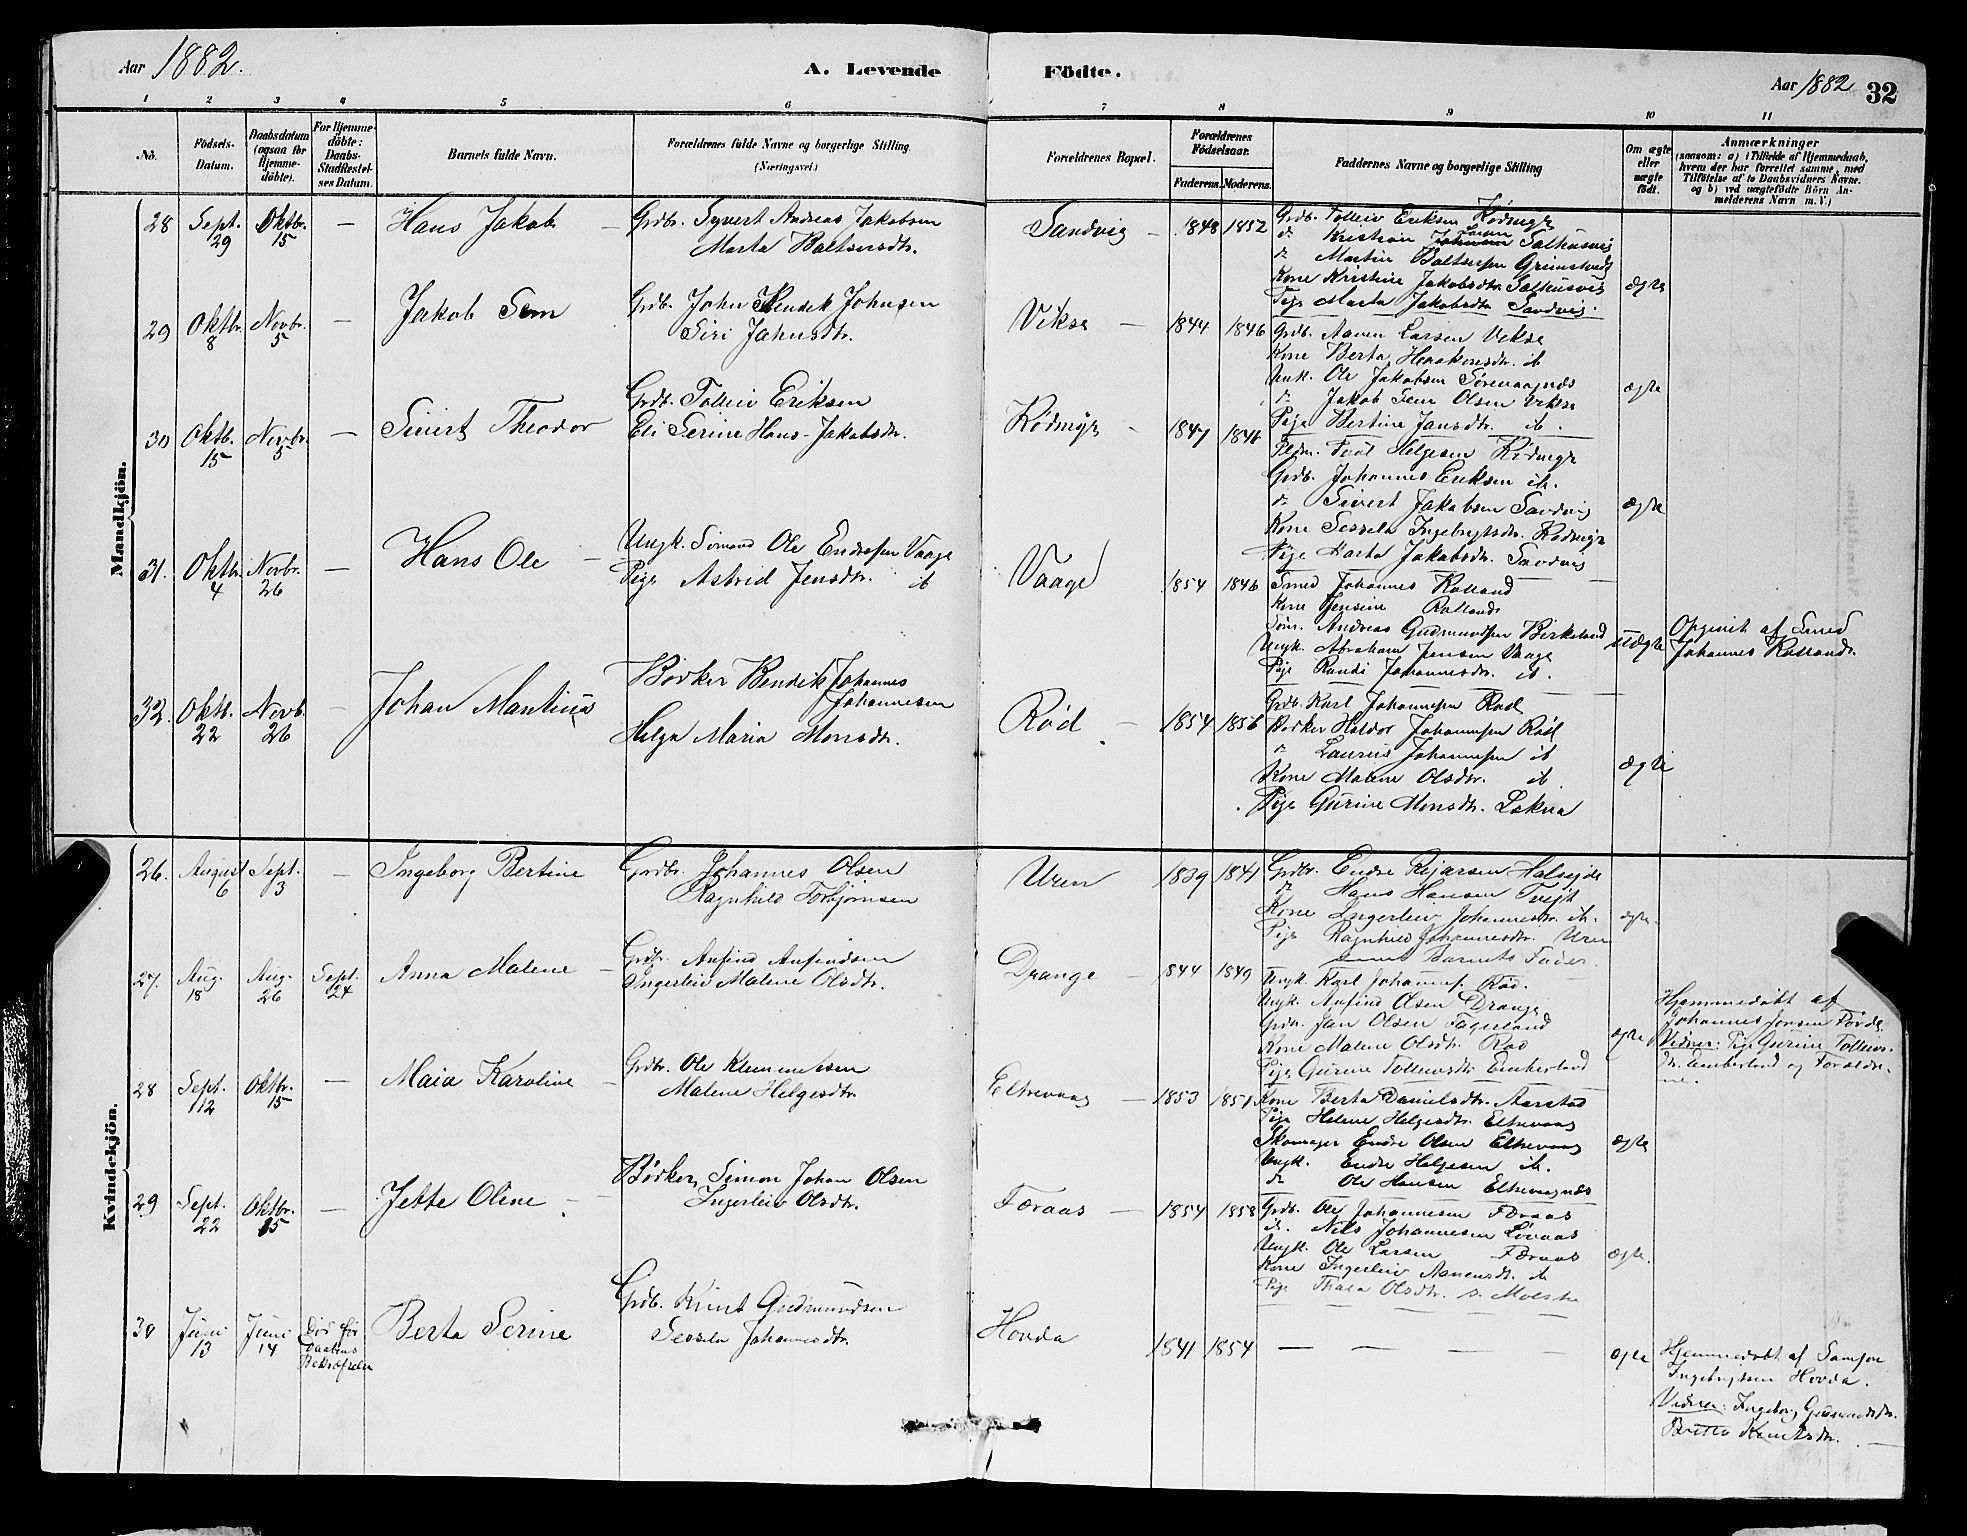 Aar 1882.
A. Levende Födte.
Aar 1882
32
1 2 3 4 5 6 7 8 9 10 11
No.
Födsels-Datum.
Daabsdatum (ogsaa for Hjemme-döbte).
For Hjemme-döbte: Daabs-Stadfæstel-ses Datum.
Barnets fulde Navn.
Forældrenes fulde Navne og borgerlige Stilling (Næringsvei.)
Forældrenes Bopæl.
Forældrenes Födselsaar.
Faderens. Moderens.
Faddernes Navne og borgerlige Stilling
Om ægte eller uægte födt.
Anmærkninger
(saasom: a) i Tilfælde af Hjemmedaab,
hvem der har forrettet samme, med
Tilföielse af to Daabsvidners Navne.
og b) ved uægtefödte Börn An-
melderens Navn m. V.)
Mandkjön.
28 Sept. 29 Oktbr. 15 — Hans Jakob — Grdb. Syvert Andreas Jakobsen
Marta Baltsersdtr.
Sandvig — 1848 1852
Grdb. Tolleiv Eriksen Rødmyr
d. Kristian Larsen Salhusvig
d. Martin Baltsersen Grimstvedt
Kone Kristine Jakobsdtr. Salhusvig
Pige Marta Jakobsdtr. Sandvig.
ægte
29 Oktbr. 8 Novbr. 5 — Jakob Sem
Grdb. John Hendik Johnsen
Siri Jahnsdtr.
Vikse — 1844 1846
Grdb. Aamen Larsen Vekse
Kone Berta Haakonsdtr. ib
Ungk. Ole Jakobsen Sørenaagnæs
d. Jakob Sem Olsen Vikse
Pige Bertine Jansdtr. ib.
ægte
30 Oktb. 15 Novbr. 5 — Sivert Theodor
Grdb. Tolleiv Eriksen
Eli Serine Hans-Jakobsdtr.
Rødmyr — 1847 1846
Helgesen Rødmyr
Grdb. Johannes Eriksen ib.
d. Sivert Jakobsen Sandvig
Kone Sessela Ingebrigtsdtr. Rødmyr
Pige Marta Jakobsdtr. Sandvig
ægte
31. Oktbr. 4 Novbr. 26 — Hans Ole —
Ungk. Sømand Ole Endresen Vaage
Pige Astrid Jensdtr. ib
Vaage 1854 1846
Smed Johannes Rolland
Kone Jensine Rolland
Søm. Andreas Gudmundsen Birkeland
Ungk. Abraham Jensen Vaage
Pige Randi Johannesdtr. ib.
uægte
Opgivit af Smed
Johannes Rolland.
32. Oktb. 22 Novb. 26 — Johan Mantius
Bødker Bendik Johannes
Johannesen
Helga Maria Monsdtr.
Rød — 1854 1856
Grdb. Karl Johannesen Rød
Bødker Haldor Johannesen Rød
d. Laurits Johannesen ib
Kone Malene Olsdtr. ib
Pige Gurine Monsdtr. Lokna
ægte
Kvindekjön.
26. August 6 Sept. 3 — Ingeborg Bertine
Grdbr. Johannes Olsen
Ragnhild Torbjørnsen
Uren 1839 1841
Grdbr. Endre Reiarsen Halseide
d. Hans Hansen Tveit
Kone Ingerleiv Johannesdtr. ib.
Pige Ragnhild Johannesdtr. Uren
samt Barnets Fader.
ægte.
27. Aug. 18 Aug. 26 Sept. 24 Anna Malene —
Grdbr. Anfind Anfindsen
Ingerleiv Malene Olsdtr.
Drange — 1844 1849
Ungk. Karl Johannes. Rød.
Ungk. Anfind Olsen Drange
Grdbr. Jan Olsen Fagerland
Kone Malene Olsdtr. Rød
Pige Gurine Tolleivsdtr Emberland
ægte
Hjemmedøbt af
Johannes Jonsen Førde
Vidner: Pige Gurine Tolleivs-
dtr. Emberland og Foreldre-
ne.
28 Sept. 12 Oktbr. 15 — Maia Karoline —
Grdbr. Ole Klemmetsen
Malene Helgesdtr.
Eltrevaag — 1853 1851
Kone Berta Danielsdtr. Aarstad
Pige Helene Helgesdtr. Eltrevaag
Skomager Endre Olsen Eltrevaag
Ungk. Endre Helgesen ib.
d. Ole Hansen Eltrevaagnæs
ægte
29 Sept. 22 Oktbr. 15 — Jette Oline —
Bødker, Simon Johan Olsen
Ingerleiv Olsdtr.
Færaas — 1854 1858
Grdb. Ole Johannesen Færaas
d. Nils Johannesen Løvaas
Ungk. Ole Larsen Færaas
Kone Ingerleiv Aanensdtr. ib
Pige Thala Olsdtr. s. Molste
ægte.
30 Juni 13 Juni 14 Død før Daabens Bekræftelse Berta Serine
Grdb. Knut Gudmundsen
Sessela Johannesdtr.
Hovda 1841 1854 — — — —
ægte
Hjemmedøbt af Samson
Ingebrigtsen Hovda.
Vidner: Ingeborg Gudmundsdtr.
Britta Knutsdtr. —